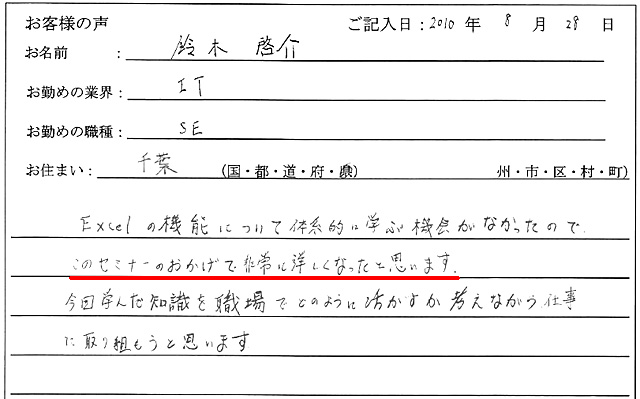 お客様の声 ご記入日:2010 年 8 月 28 日
お名前 : 鈴木 啓介
お勤めの業界: IT
お勤めの職種: SE
お住まい: 千葉 (国・都・道・府・県) 州・市・区・村・町)
Excelの機能について体系的に学ぶ機会がなかったので
このセミナーのおかげで非常に詳しくなったと思います.
今回学んだ知識を職場でどのように活かすか考えながら仕事
に取り組もうと思います